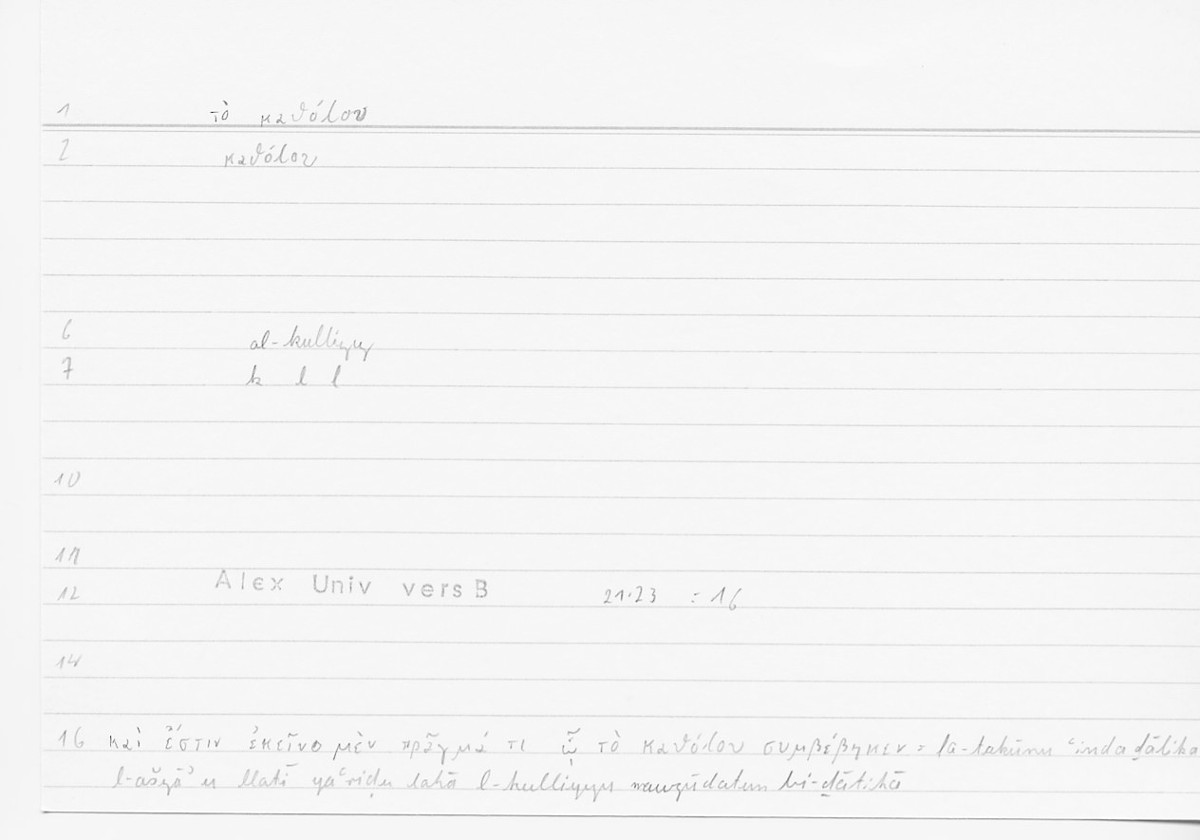 1 τὸ καθόλου
2 καθόλου
6 al-kulliyy
7 k l l
10
11
12 Alex Univ vers B 21.23 = 16
14
16 καὶ ἔστιν ἐκεῖνο μὲν πρᾶγμά τι ᾧ τὸ καθόλου συμβέβηκεν = fa-takūnu ʿinda ḏālika
l-ašyāʾu llatī yaʿriḍu lahā l-kulliyyu mawǧūdatun bi-ḏātihā